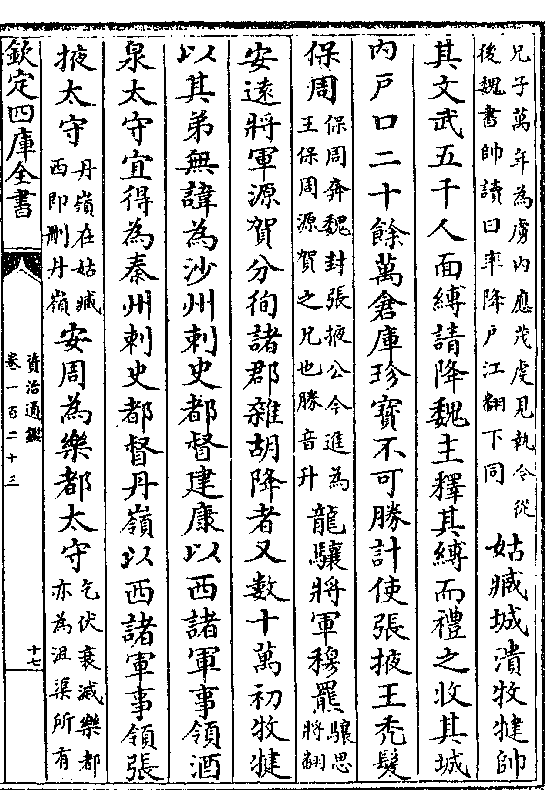 兄子萬年為虜内應茂虔見執今從
後魏書帥讀曰率降户江翻下同
姑臧城潰牧犍帥
其文武五千人面縛請降魏主釋其縛而禮之收其城
内戸口二十餘萬倉庫珍寶不可勝計使張掖王禿髮
保周
保周奔魏封張掖公今進為
王保周源賀之兄也勝音升
龍驤將軍穆羆
驤思
將翻
安遠將軍源賀分徇諸郡雜胡降者又數十萬初牧犍
以其弟無諱為沙州刺史都督建康以西諸軍事領酒
泉太守宜得為秦州刺史都督丹嶺以西諸軍事領張
掖太守
丹嶺在姑臧
西即刪丹嶺
安周為樂都太守
乞伏衰滅樂都
亦為沮渠所有
欽定四庫全書
資治通鑑
卷一百二十三
十七